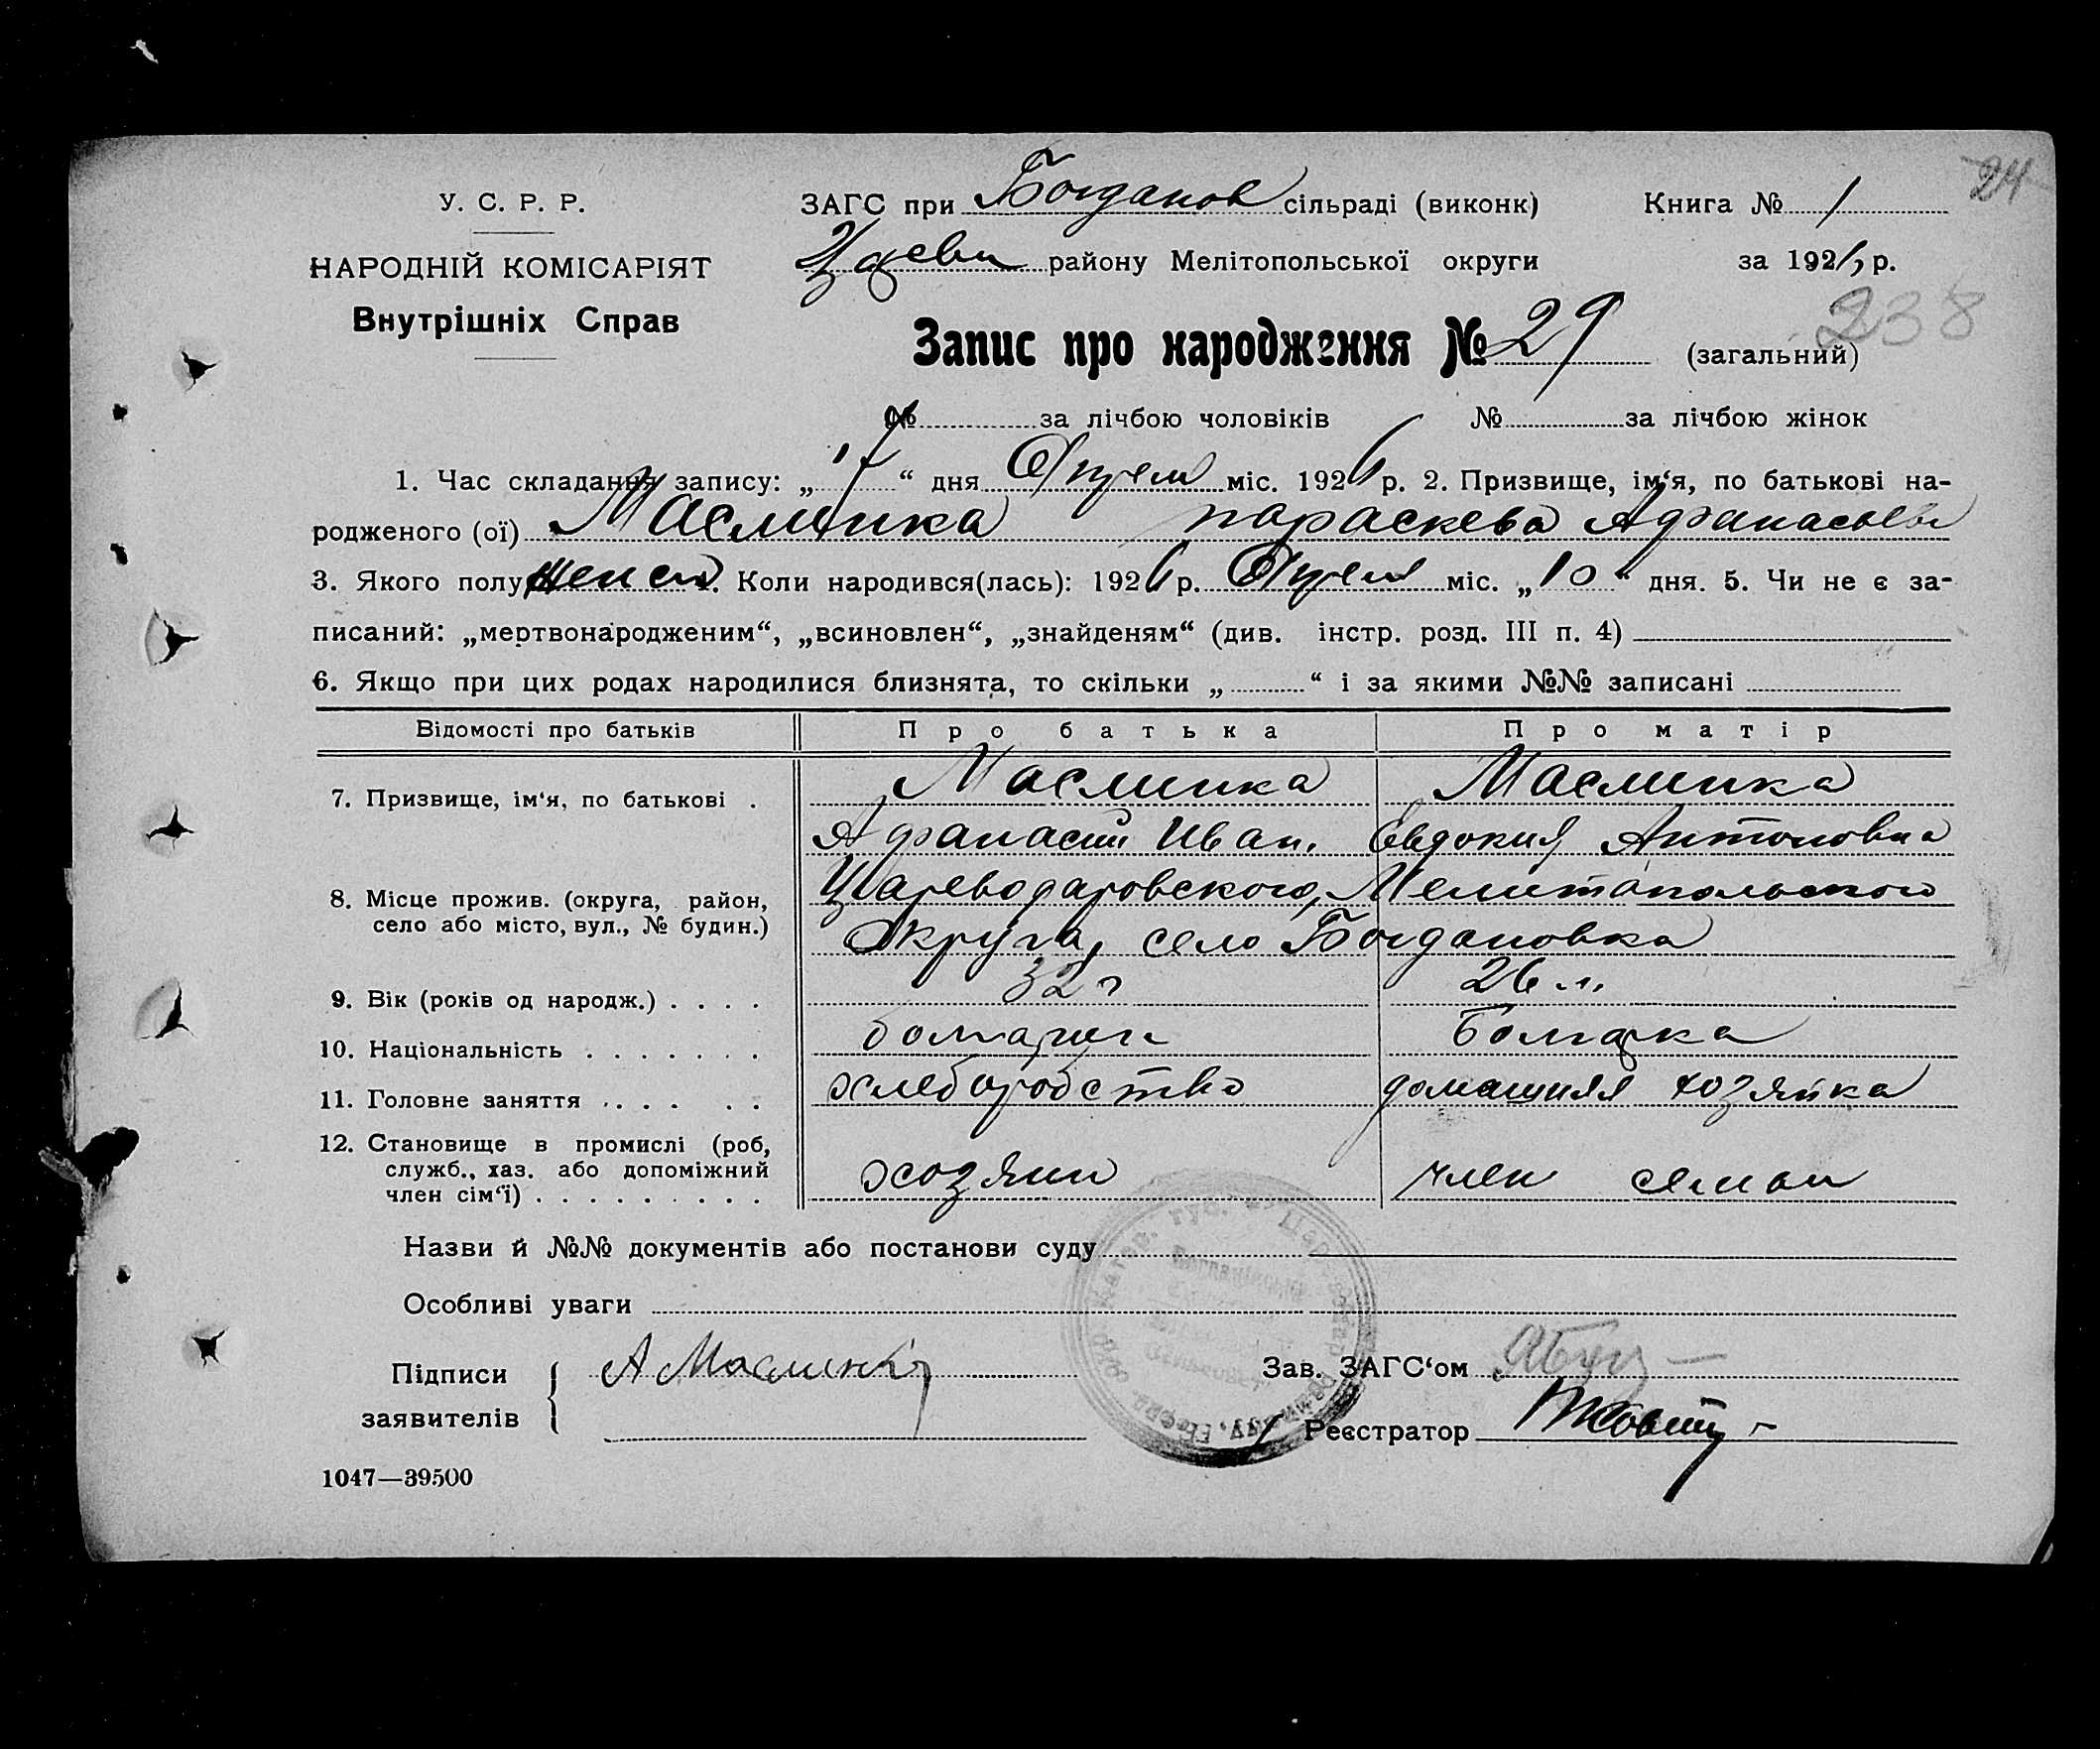 24
У. С. Р. Р.
НАРОДНІЙ КОМІСАРІЯТ
Внутрішніх Справ
ЗАГС при Богданов сільраді (виконк) Книга № 1
району Мелітопольської округи за 1926 р.
238
Запис про народження № 29 (загальний)
№ за лічбою чоловіків № за лічбою жінок
1. Час складання запису: „17“ дня Апрель міс. 1926 р. 2. Призвище, ім‘я, по батькові на-
родженого (ої) Маслинка параскева Афанасьев
3. Якого полу женск. Коли народився(лась): 1926 р. Апрель міс. „10“ дня. 5. Чи не є за-
писаний: „мертвонародженим“, „всиновлен“, „знайденям“ (див. інстр. розд. III п. 4)
6. Якщо при цих родах народилися близнята, то скільки „ “ і за якими №№ записані
Відомості про батьків Про батька Про матір
7. Призвище, ім‘я, по батькові . Маслинка Маслинка
Афанасий Иван. Евдокия Антоновна
8. Місце прожив. (округа, район, село або місто, вул., № будин.) Цареводаровского, Мелитопольского
Округа, село Богдановка
9. Вік (років од народж.) . . . . 32 г 26 л.
10. Національність . . . . . . . болгарин Болгарка
11. Головне заняття . . . . . . хлеборобство домашняя хозяйка
12. Становище в промислі (роб,
служб., хаз. або допоміжний
член сім‘ї) . . . . . . . . . хозяин член семьи
Назви й №№ документів або постанови суду
Особливі уваги
Підписи заявителів А Маслинка
Зав. ЗАГС‘ом
Реєстратор
1047—39500